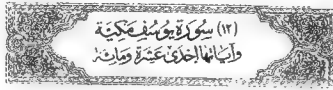 (١٢) سُورَةُ يُوسُفَ مَكِّيَّة
وَآيَاتُهَا إِحْدَى عَشَرَةَ وَمِائَة